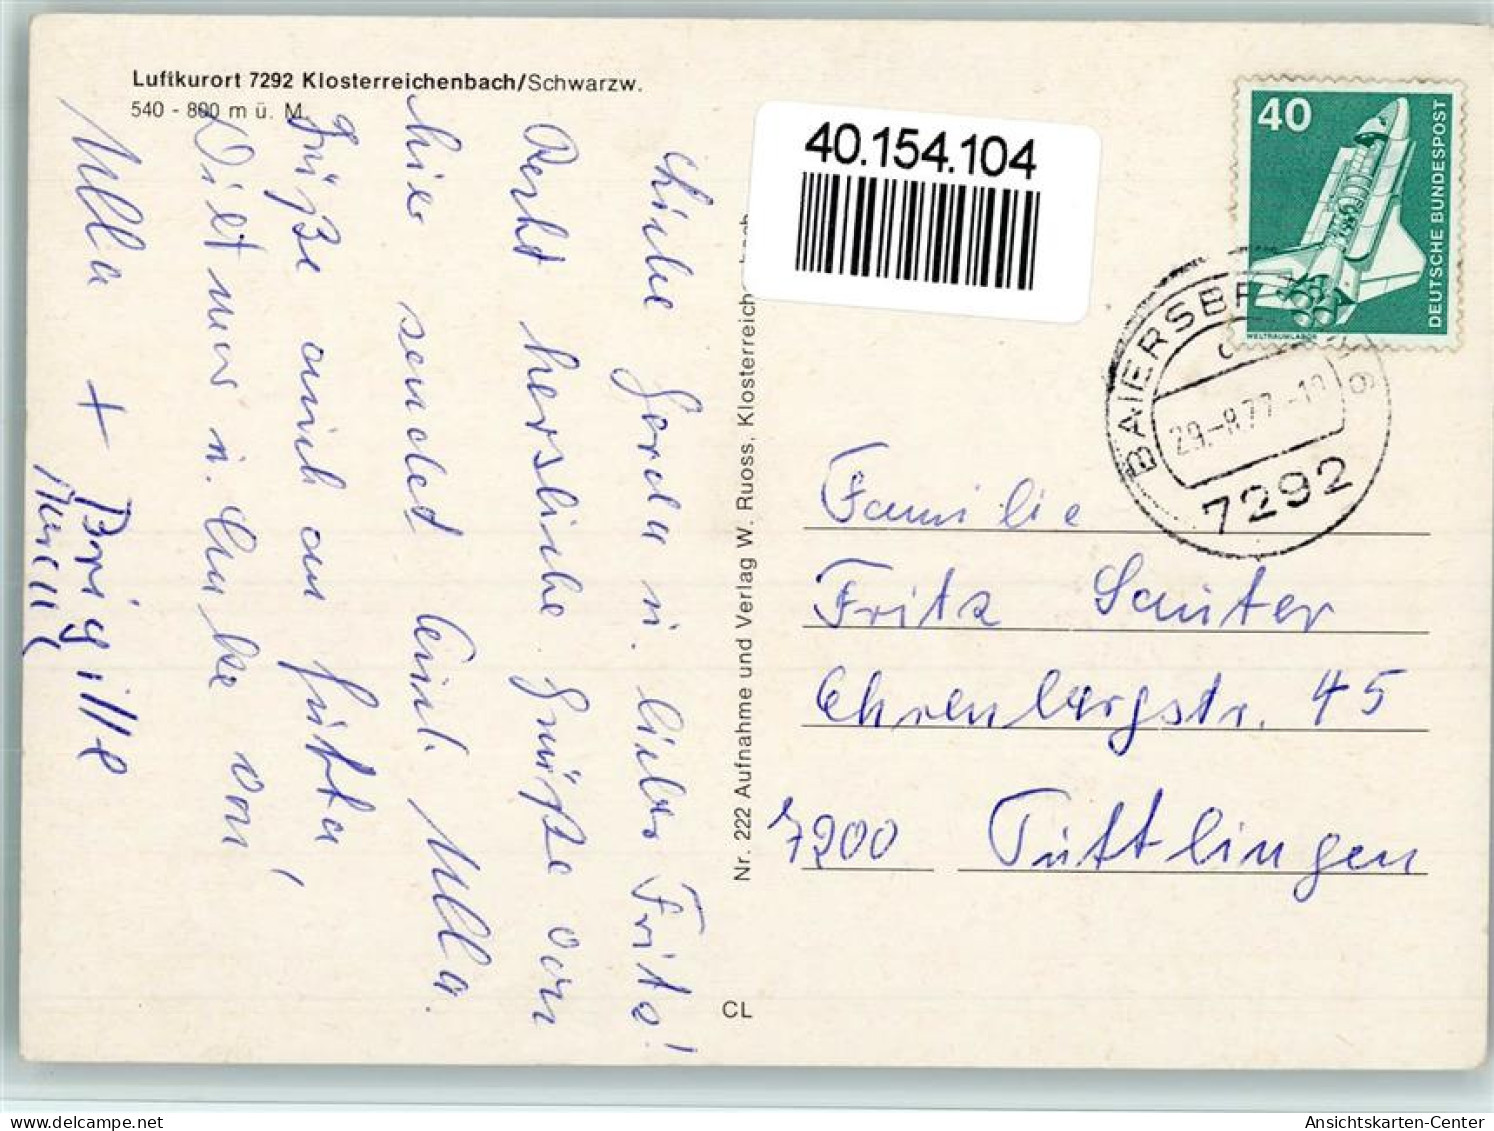 Luftkurort 7292 Klosterreichenbach/Schwarzw.
540 - 800 m ü. M.
Liebe Gerda u. lieber Fritz!
Recht herzliche Grüße von
hier sendet Euch Ulla.
Grüße auch an Jutta,
Dietmar u. Anke von
Ulla + Brigitte
40.154.104
Nr. 222 Aufnahme und Verlag W. Ruoss, Klosterreichenbach
CL
40
DEUTSCHE BUNDESPOST
WELTRAUMLABOR
BAIERSBRONN 6
29.-8.77.-10
7292
Familie
Fritz Sauter
Ehrenbergstr. 45
7200 Tuttlingen
Ansichtskarten-Center